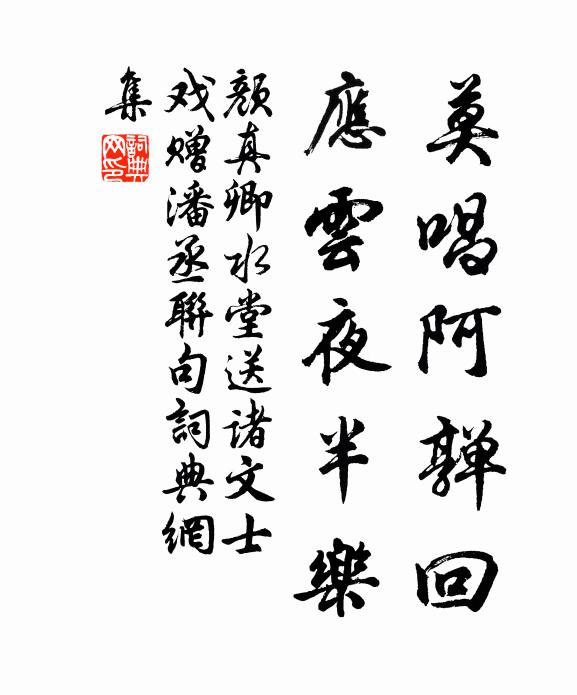 莫唱阿亸回
應雲夜半樂
顏真卿水堂送诸文士
戏赠潘丞聯句詞典網
集
詞典网印